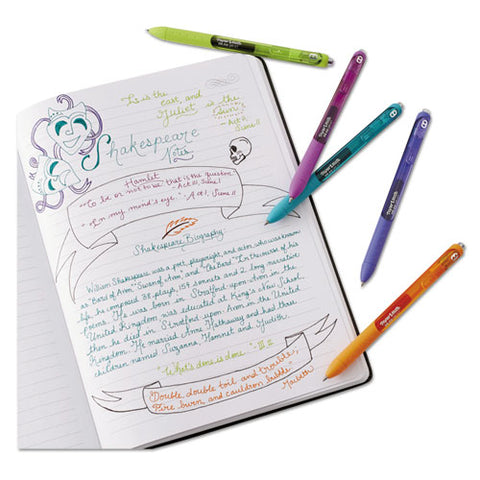 It is the
east, and
Juliet is the
Sun.
- Act II,
Scene II
Shakespeare
Notes
Hamlet
"To be or not to be that is the question."
- Act III, Scene I
"In my mind's eye." - Act 1, Scene II
Shakespeare Biography:
William Shakespeare was a poet, playwright, and actor who was known
as "Bard of Avon," "Swan of Avon," and "The Bard." In the course of his
life, he composed 38 plays, 154 sonnets and 2 long narrative
poems. He was born in Stratford-upon-Avon in the
United Kingdom was educated at King's New School,
then he died in Stratford-upon-Avon in the United
Kingdom. He married Anne Hathaway and had three
children named Suzanna, Hamnet and Judith.
"What's done is done." - III.II
"Double, double toil and trouble;
Fire burn, and cauldron bubble"
Macbeth
Paper Mate
Paper Mate
Paper Mate
Paper Mate